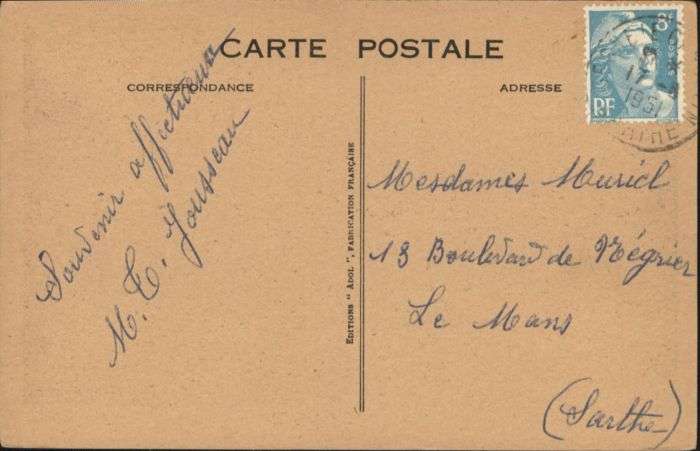 CARTE POSTALE
CORRESPONDANCE
ADRESSE
Souvenir affectueux
M. T. Jousseau
EDITIONS " ADOL ", FABRICATION FRANÇAISE
8F
RF
17
1951
Mesdames Muriel
13 Boulevard de Négrier
Le Mans
(Sarthe)